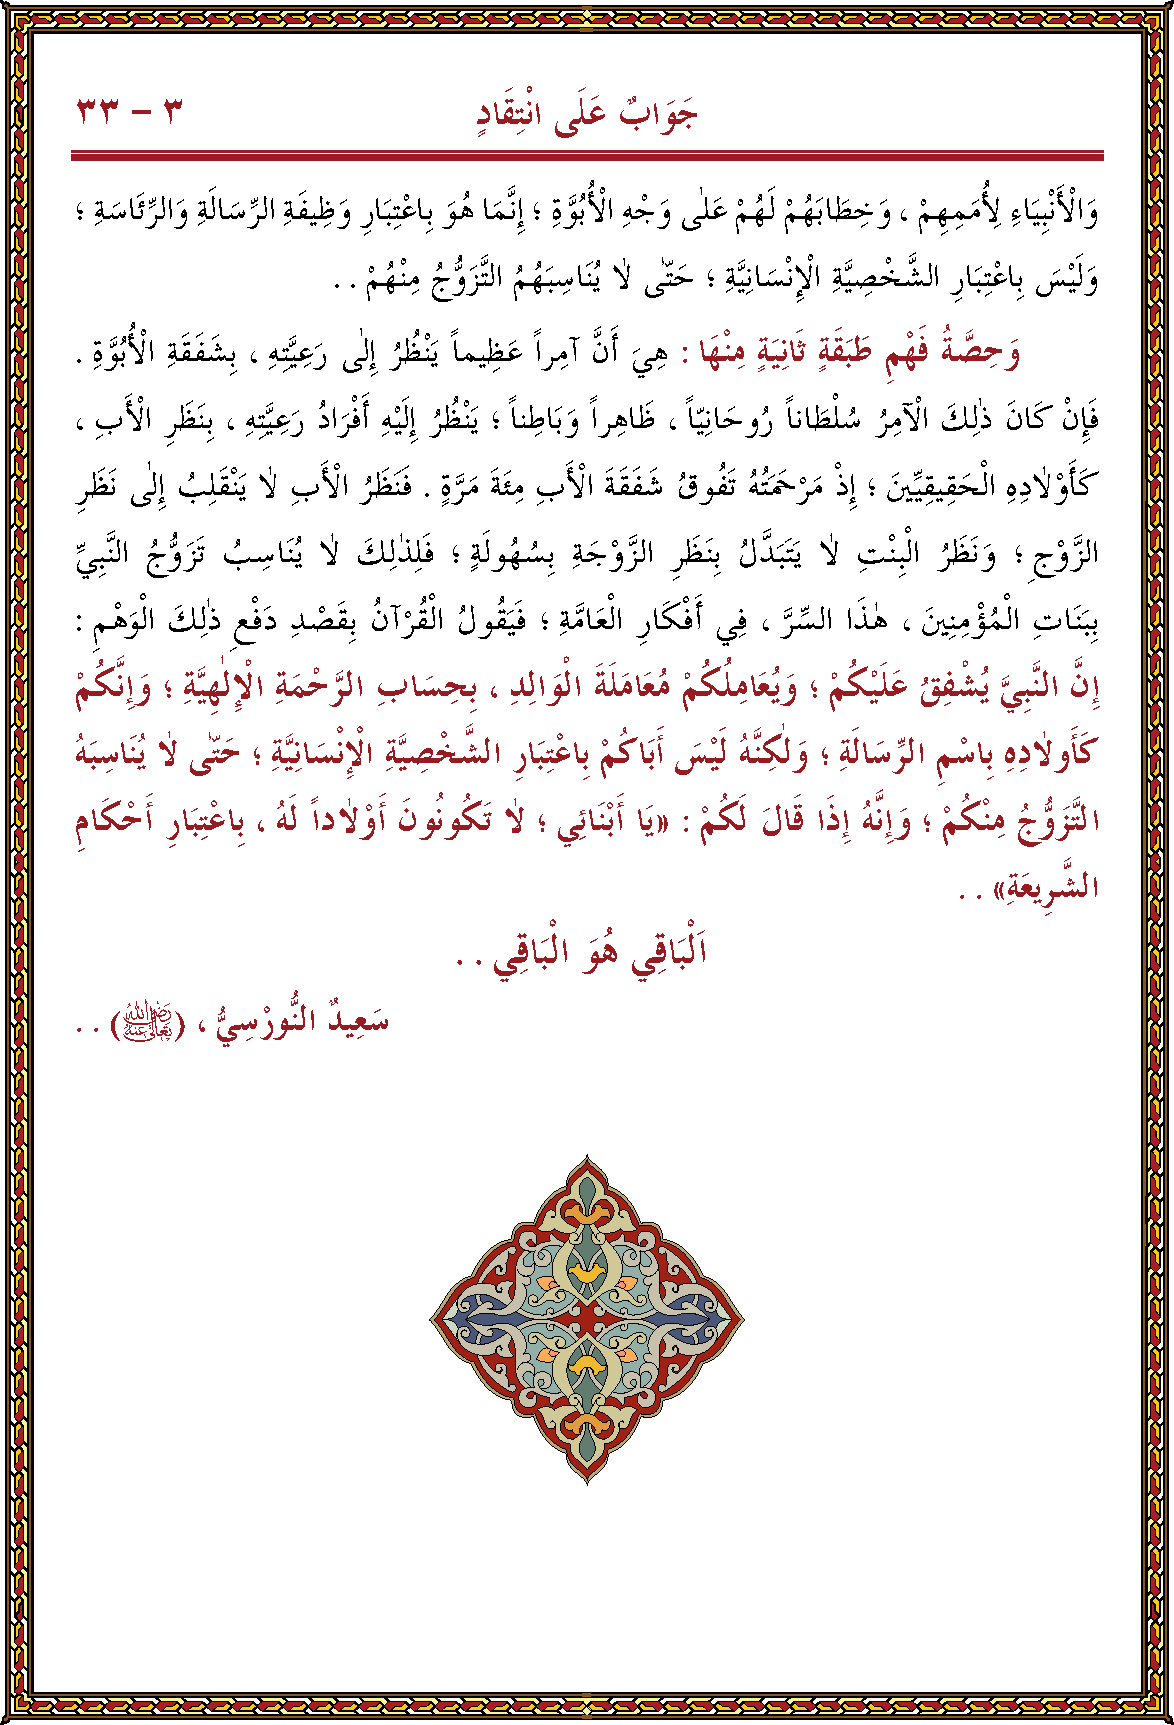 جَوَابٌ عَلَى انْتِقَادٍ ٣ – ٣٣
وَالْأَنْبِيَاءِ لِأُمَمِهِمْ ، وَخِطَابُهُمْ لَهُمْ عَلٰى وَجْهِ الْأُبُوَّةِ ؛ إِنَّمَا هُوَ بِاعْتِبَارِ وَظِيفَةِ الرِّسَالَةِ وَالرِّئَاسَةِ ؛
وَلَيْسَ بِاعْتِبَارِ الشَّخْصِيَّةِ الْإِنْسَانِيَّةِ ؛ حَتّٰى لَا يُنَاسِبَهُمُ التَّزَوُّجُ مِنْهُمْ . .
وَحِصَّةُ فَهْمِ طَبَقَةٍ ثَانِيَةٍ مِنْهَا : هِيَ أَنَّ آمِراً عَظِيماً يَنْظُرُ إِلٰى رَعِيَّتِهِ ، بِشَفَقَةِ الْأُبُوَّةِ .
فَإِنْ كَانَ ذٰلِكَ الْآمِرُ سُلْطَاناً رُوحَانِيّاً ، ظَاهِراً وَبَاطِناً ؛ يَنْظُرُ إِلَيْهِ أَفْرَادُ رَعِيَّتِهِ ، بِنَظَرِ الْأَبِ ،
كَأَوْلَادِهِ الْحَقِيقِيِّينَ ؛ إِذْ مَرْحَمَتُهُ تَفُوقُ شَفَقَةَ الْأَبِ مِئَةَ مَرَّةٍ . فَنَظَرُ الْأَبِ لَا يَنْقَلِبُ إِلٰى نَظَرِ
الزَّوْجِ ؛ وَنَظَرُ الْبِنْتِ لَا يَتَبَدَّلُ بِنَظَرِ الزَّوْجَةِ بِسُهُولَةٍ ؛ فَلِذٰلِكَ لَا يُنَاسِبُ تَزَوُّجُ النَّبِيِّ
بِبَنَاتِ الْمُؤْمِنِينَ ، هٰذَا السِّرَّ ، فِي أَفْكَارِ الْعَامَّةِ ؛ فَيَقُولُ الْقُرْآنُ بِقَصْدِ دَفْعِ ذٰلِكَ الْوَهْمِ :
إِنَّ النَّبِيَّ يُشْفِقُ عَلَيْكُمْ ؛ وَيُعَامِلُكُمْ مُعَامَلَةَ الْوَالِدِ ، بِحِسَابِ الرَّحْمَةِ الْإِلٰهِيَّةِ ؛ وَإِنَّكُمْ
كَأَوْلَادِهِ بِاسْمِ الرِّسَالَةِ ؛ وَلٰكِنَّهُ لَيْسَ أَبَاكُمْ بِاعْتِبَارِ الشَّخْصِيَّةِ الْإِنْسَانِيَّةِ ؛ حَتّٰى لَا يُنَاسِبَهُ
التَّزَوُّجُ مِنْكُمْ ؛ وَإِنَّهُ إِذَا قَالَ لَكُمْ : «يَا أَبْنَائِي ؛ لَا تَكُونُونَ أَوْلَاداً لَهُ ، بِاعْتِبَارِ أَحْكَامِ
الشَّرِيعَةِ» . .
اَلْبَاقِي هُوَ الْبَاقِي . .
سَعِيدٌ النُّورْسِيُّ ، (رضي الله تعالى عنه) . .